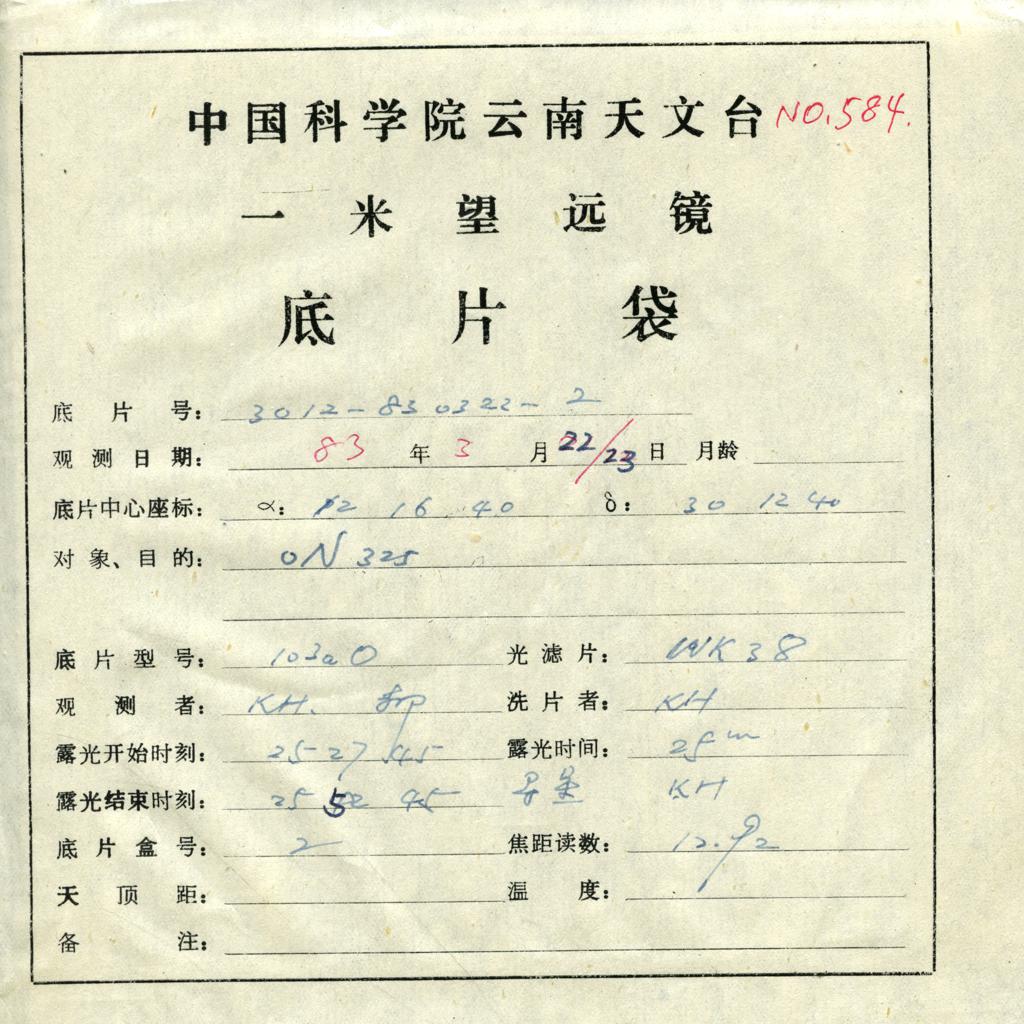 中国科学院云南天文台 NO.584.
一米望远镜
底片袋
底片号: 3012-830322-2
观测日期: 83年3月22/23日 月龄
底片中心座标: α: 12 16 40 δ: 30 12 40
对象、目的: ON 325
底片型号: 103aO 光滤片: WK38
观测者: KH. 洗片者: KH
露光开始时刻: 25 27 45 露光时间: 25m
露光结束时刻: 25 52 45 导星 KH
底片盒号: 2 焦距读数: 12.92
天顶距: 温度:
备注: